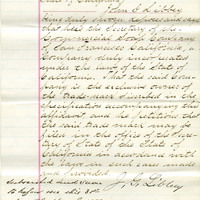 State of California
Wm. G. Libbey
being duly sworn deposes and says
that he is the Secretary of the
Commercial Soap Company
of San Francisco California, a
Company duly incorporated
under the laws of the State of
California. That the said Com-
pany is the exclusive owner of
the Trade-mark named in the
specification accompanying this
affidavit and he petitions that
the said trade mark may be
filed in the office of the Secre-
tary of State of the State of
California in accordance with
the law in such cases made
and provided
Subscribed and sworn
to before me this
J. G. Libbey